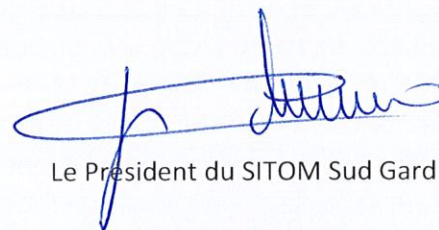 Le Président du SITOM Sud Gard